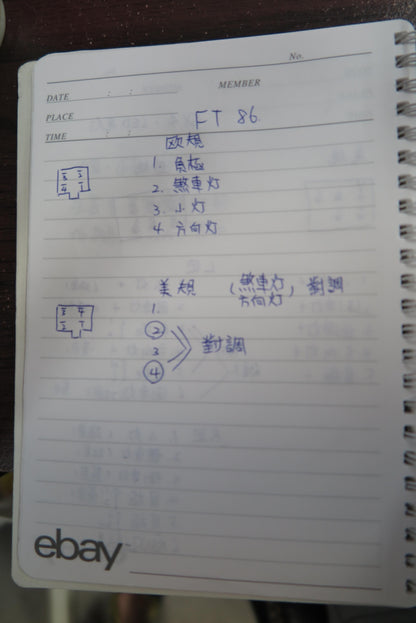 No.
DATE : : MEMBER
PLACE
TIME : :
FT 86
欧規
1. 負極
2. 煞車灯
3. 小灯
4. 方向灯
美規 (煞車灯 方向灯) 對調
1.
2
3
4
對調
ebay